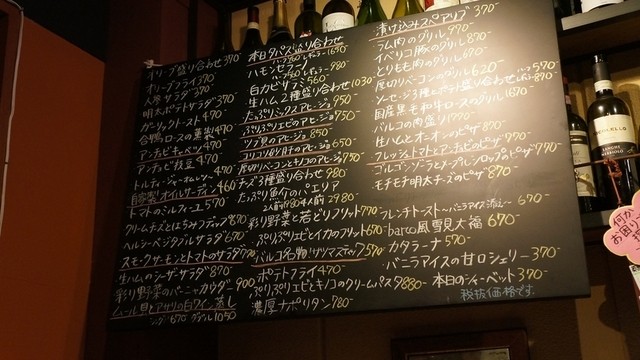 オリーブ盛り合わせ 370
オリーブフライ 370
人参サラダ 370
明太ポテトサラダ 370
ガーリックトースト 470
合鴨ロースの薫製 470
アンチョビキャベツ 470
アンチョビ枝豆 470
トルティージャ 470
自家製オイルサーディン 460
トマトの 570
クリームチーズとはちみつ 870
ヘルシーベジタブルサラダ 670
スモークサーモンとトマトのサラダ 770
生ハムのシーザーサラダ 870
彩り野菜のバーニャカウダ 900
ムール貝とアサリの白ワイン蒸し
シングル 670 ダブル 1050
本日タパス盛り合わせ
ハモンセラーノ
ハーフ 580 レギュラー 980
白カビサラミ 560
生ハム2種盛り合わせ 1030-
たっぷりミックスアヒージョ 950-
ぷりぷりエビのアヒージョ 750-
ツブ貝のアヒージョ 850
コリコリ砂肝のアヒージョ 650-
厚切りベーコンとキノコのアヒージョ 750
チーズ3種盛り合わせ 980-
たっぷり魚介のパエリア
2人前 1980 4人前 2980-
彩り野菜と若どりフリット 770
ぷりぷりエビとイカのフリット 670
バルコ名物! 570
ポテトフライ 470
ぷりぷりエビとキノコのクリームパスタ 880-
濃厚ナポリタン 780-
漬け込みスペアリブ 370-
ラム肉のグリル 990
イベリコ豚のグリル 870
とりもも肉のグリル 870
厚切りベーコンのグリル 620
ソーセージ3種とポテト盛り合わせ
国産黒毛和牛ロースのグリル 1670-
バルコの肉盛り 1770-
生ハムとオニオンのピザ 870
フレッシュトマトとアンチョビのピザ 770
ゴルゴンゾーラとメープルシロップのピザ 770-
モチモチ明太チーズのピザ 870
フレンチトースト〜バニラアイス添え〜 670-
barco風雪見大福 670-
カタラーナ 570
バニラアイスの甘口シェリー 370
本日のシャーベット 370-
税抜価格です。